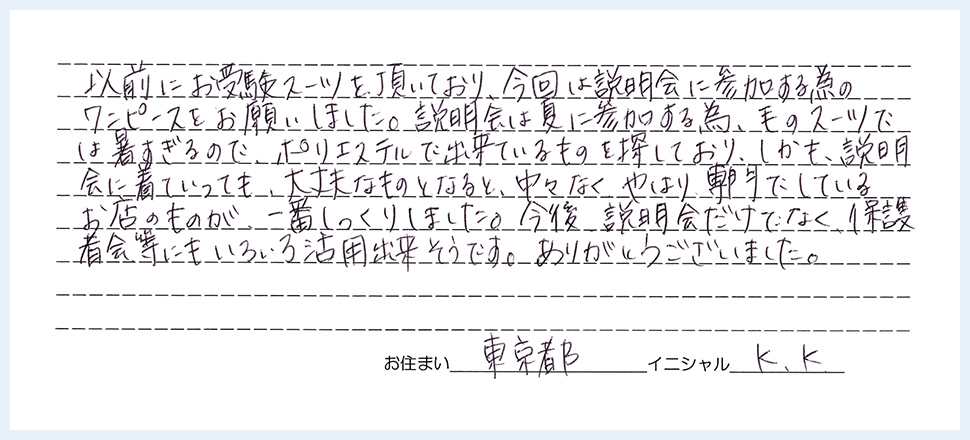 以前にお受験スーツを頂いており、今回は説明会に参加する為の
ワンピースをお願いしました。説明会は夏に参加する為、毛のスーツで
は暑すぎるので、ポリエステルで出来ているものを探しており、しかも、説明
会に着ていっても、大丈夫なものとなると、中々なく、やはり専門でしている
お店のものが、一番しっくりしました。今後、説明会だけでなく、保護
者会等にもいろいろ活用出来そうです。ありがとうございました。
お住まい 東京都 イニシャル K.K